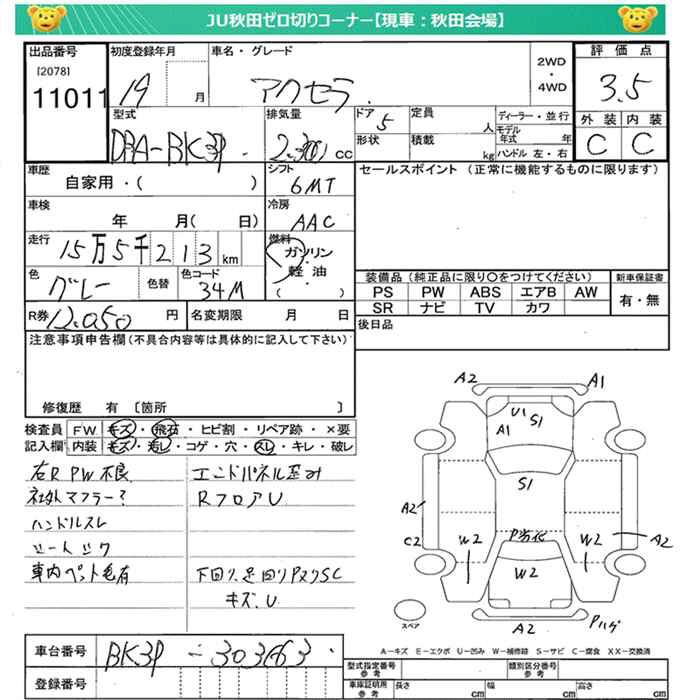 JU秋田ゼロ切りコーナー【現車：秋田会場】
出品番号 初度登録年月 車名・グレード 2WD・4WD 評価点
[2078]
11011 19 月 アクセラ 3.5
型式 排気量 ドア 定員 ディーラー・並行 外装 内装
DBA-BK3P 2.300 cc 5 人 モデル年式 年 C C
形状 積載 kg ハンドル 左・右
車歴 シフト セールスポイント (正常に機能するものに限ります)
自家用・( ) 6MT
車検 冷房
年 月( 日) AAC
走行 燃料
15万5千213km ガソリン
軽油
( )
色 色替 色コード 装備品 (純正品に限り○をつけてください) 新車保証書
グレー 34M PS PW ABS エアB AW 有・無
SR ナビ TV カワ
R券 12,050 円 名変期限 月 日 後日品
注意事項申告欄(不具合内容等は具体的に記入して下さい)
修復歴 有 〔箇所 〕
検査員 FW キズ・飛石・ヒビ割・リペア跡・×要
記入欄 内装 キズ・汚レ・コゲ・穴・スレ・キレ・破レ
右R PW不良 エンドパネル歪み
社外マフラー? RフロアU
ハンドルスレ
車内ペット毛有 下回り、足回りPヌリSC
キズ、U
A2 A1
U1 S1
A1
S1
A2
C2 W2 P劣化 W2 A2
W2
スペア A2 Pハゲ
A-キズ E-エクボ U-凹み W-補修跡 S-サビ C-腐食 XX-交換済
車台番号 BK3P-303463
型式指定番号 参考 類別区分番号 参考
登録番号 車庫証明用 参考 長さ cm 幅 cm 高さ cm